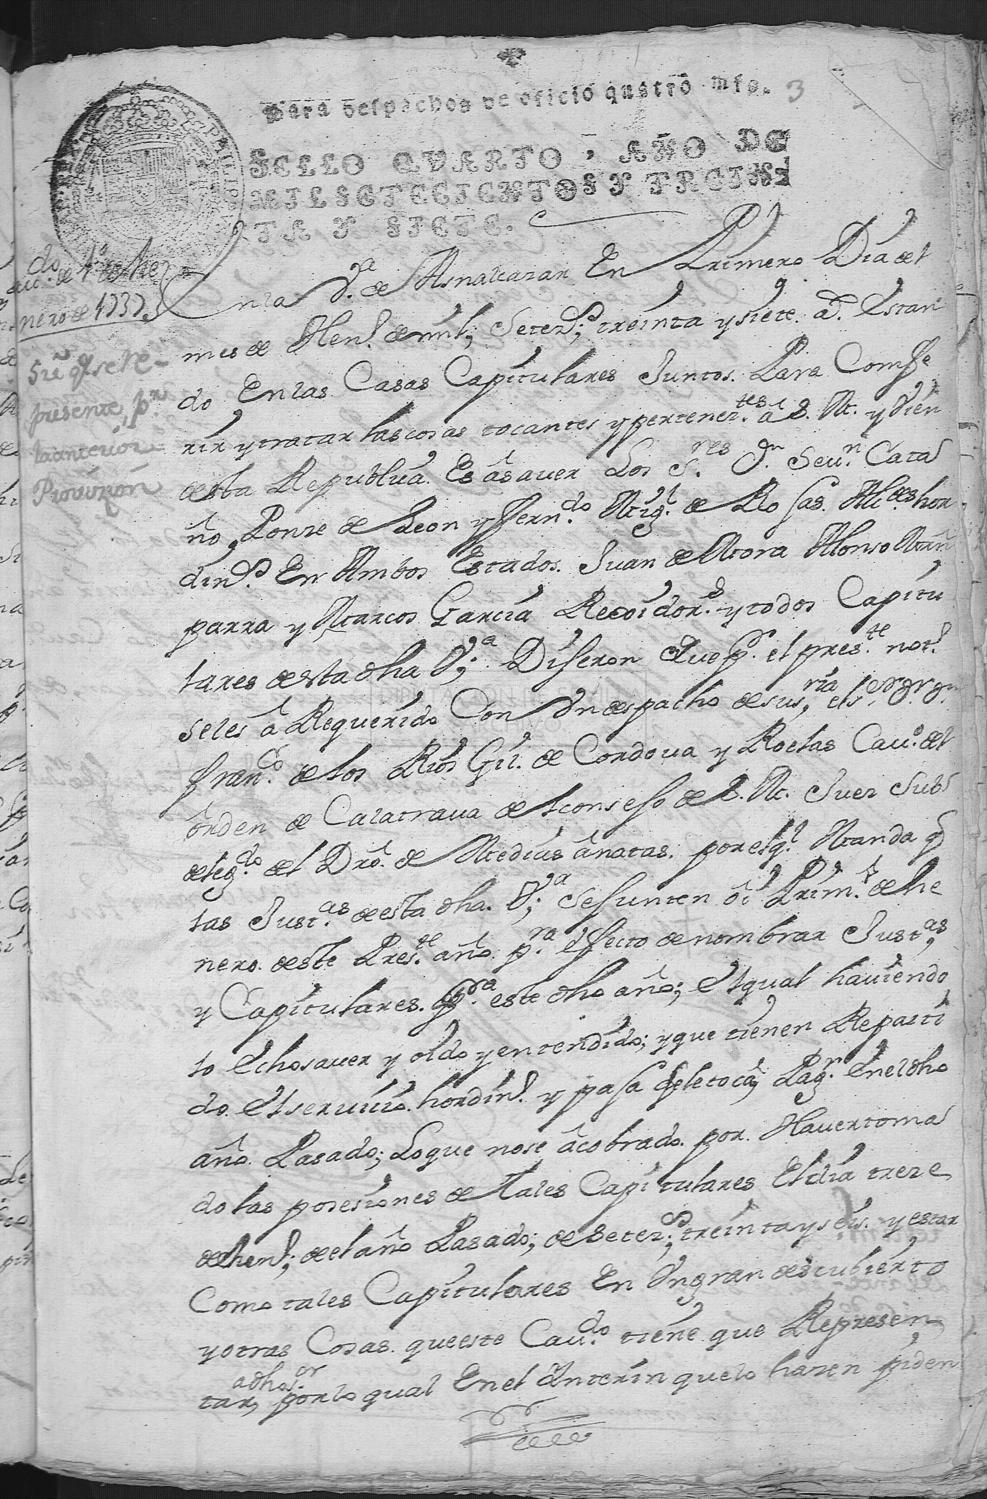 Para despachos de oficio quatro mrs. 3
SELLO QVARTO, AÑO DE
MIL SETECIENTOS Y TREIN
TA Y SIETE.
de 1º de He
nero de 1737
Sre q se re
presente pr
la anterior
Provision
En la Vª de Asnalcazar En Primero Dia del
mes de Hen.º de mill; Setez.s treinta y siete a.s Estan
do En las Casas Capitulares Juntos. Para Confe
rir y tratar las cosas tocantes y pertenez.tes â S. M. y vien
desta Republica Es âsaver Los S.res Dn Seu.n Cata
ño, Ponze de Leon y ffern.do Mig.l de Rojas. Alc.des hor
din.os En Ambos Estados. Juan de Mora Alonso Man
parra y Marcos Garcia Rexidor.s y todos Capitu
lares desta dha V.ª; Dijeron Que pr. el pres.te not.º
seles â Requerido Con Un despacho de su s.ria, el s.or Dn
fran.co de los Rios Gu. de Cordova y Roelas Cav.º del
ôrden de Calatrava del consejo de S. M. Juez Sub
deleg.do del Dro. de Medias ânatas. por el q.l Manda q
las Just.as desta dha. V.ª; se Junten oi Prim.º de he
nero. deste Pres.te año. p.ra effecto de nombrar Just.as,
y Capitulares. p.ra este dho año; El qual haviendo
lo Echo saver y oido y entendido; y que tienen Reparti
do El servicio. hordin.º y paja q le toca Pag.r En el dho
año. Pasado; Lo que no se â cobrado. por. Haver toma
do las posesiones de tales Capitulares El dia treze
de hen.º; del año Pasado; de Setez.s; treinta y seis. y estar
Como tales Capitulares En Un gran descubierto
y otras Cosas. que este Cav.do tiene que Represen
tar, a dho s.or por lo qual En el Ynterin que lo hazen piden